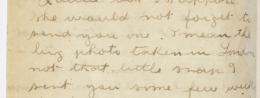 she would not forget to
send you one. I mean the
big photo taken in London
not that little snap I
sent you some few weeks